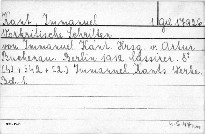 Kant, Immanuel
Vorkritische Schriften
von Immanuel Kant. Hrsg. v. Artur
Buchenau. Berlin 1912 Cassirer. 8°
Immanuel Kants Werke.
Bd. 1.